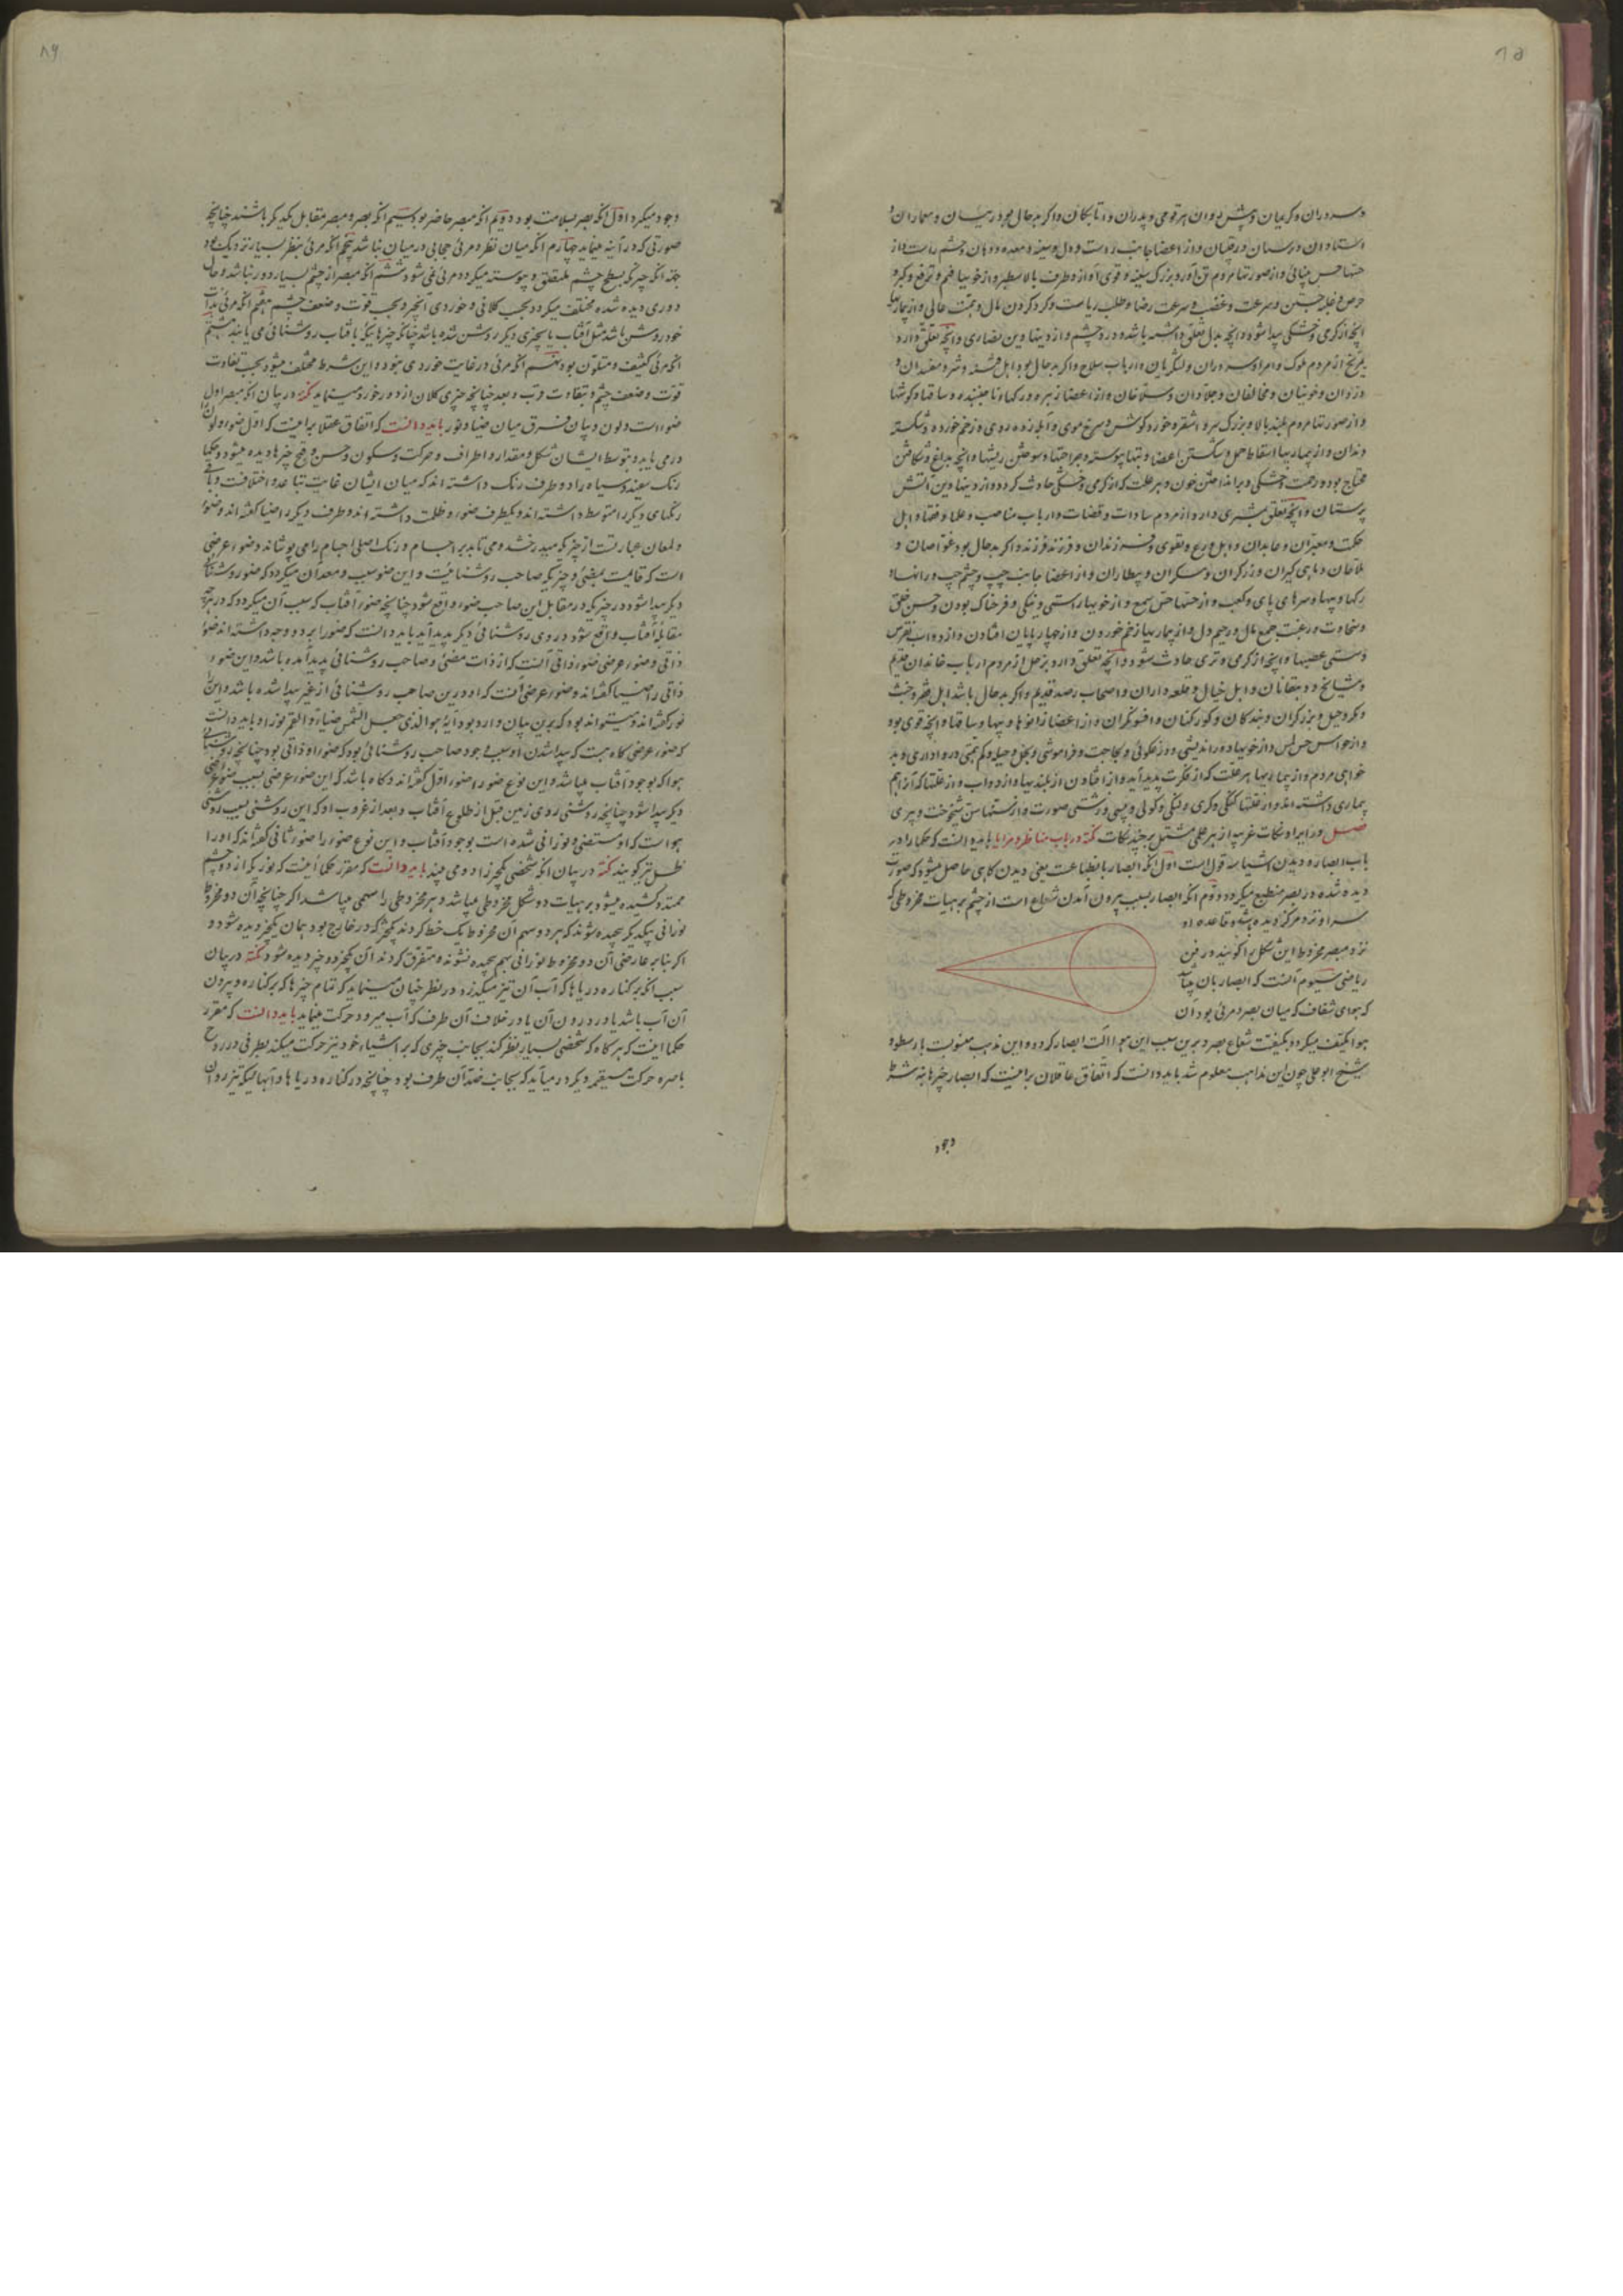 ۸۵
وسروران وکریمان وپیش روان هر قومی وپدران واتابکان واکر بدحال بود رئیسان ومعماران و
استادان از اعضا جانب راست ودل وسینه ومعده ودهان وچشم راست واز
حسها حس بینائی واز صورتها مردم تن آور وبزرک سینه وقوی آواز واز خویها فهم وترفع وکبر و
حرص وغلبه جستن وسرعت غضب وسرعت رضا وطلب ریاست وکرد کردن مال وهمت عالی واز بیماریها
انچه از کرمی وخشکی پیدا شود وانچه بدل تعلق داشته باشد ودرد چشم واز دینها دین نصاری وانچه تعلق دارد
بمریخ از مردم ملوک وامرا وسرداران ولشکریان وارباب سلاح واکر بدحال بود اهل فتنه وشر ومفسدان و
دزدان وخونیان ومخالفان وجلادان واز اعضا زهره ورکهای ناجهنده وساقها وکوشها
واز صورتها مردم بلند بالا وبزرک سر واشقر وخورد کوش وسرخ موی وآبله زده روی وزخم خورده وشکسته
دندان واز بیماریها اسقاط حمل وشکستن اعضا وتبها پیوسته وجراحتها وسوختن ریشها وانچه بداغ وشکافتن
محتاج بود وزحمت خشکی وبرانداختن خون وهر علت که از کرمی وخشکی حادث کردد واز دینها دین آتش
پرستان وانچه تعلق بمشتری دارد از مردم سادات وقضات وارباب مناصب وعلما وفقها واهل
حکمت ومعبران وعابدان واهل ورع وتقوی وفرزندان وفرزند فرزند واکر بدحال بود غواصان و
ملاحان وماهی کیران وزرکران ومسکران وبیطاران واز اعضا جانب چپ وچشم چپ ورانها و
رکها وپیها وسرهای پای وکعب واز حسها حس سمع واز خویها راستی ونیکی وفرحناک بودن وحسن خلق
وسخاوت ورغبت جمع مال ورحیم دل واز بیماریها زخم خوردن واز چهارپایان افتادن واز دواب نقرس
وسستی عصبها وانچه از کرمی وتری حادث شود وانچه تعلق دارد بزحل از مردم ارباب خاندان قدیم
ومشایخ ودهقانان واهل خیال وقلعه داران واصحاب رصد قدیم واکر بدحال باشد اهل قهر وخبث
ومکر وحیل وبزرکران وبندکان وکورکنان وافسونکران واز اعضا زانوها وپیها وساقها وانچه قوی بود
واز حواس حس لمس واز خویها دوراندیشی ودروغکوئی ولجاجت وفراموشی وبخل وحیله وکم همتی ورواداری وبد
خواهی مردم واز بیماریها هر علت که از فکرت پدید آید واز افتادن از بلندیها واز دواب واز علتها که از هم
بیماری داشته اند واز علتها کنکی وکری ولنکی وکولی وپیسی وزشتی صورت واز سنها سن شیخوخت وپیری
فصل در ایراد نکات غریب از هر علمی مشتمل بر چند نکات نکته در باب مناظر ومرایا باید دانست که حکما را در
باب ابصار ودیدن اشیا سه قول است اول انکه ابصار بانطباعست یعنی دیدن کاهی حاصل میشود که صورت
دیده شده در بصر منطبع میکردد ودوم انکه ابصار بسبب بیرون آمدن شعاع است از چشم بر هیأت مخروطی که
سر او نزد مرکز دیده باشد وقاعده او
نزد مبصر مخروط این شکل را کویند در فن
ریاضی سیوم آنست که ابصار بان هیأت
که هوای شفاف که میان بصر ومرئی بود آن
هوا متکیف میکردد بکیفیت شعاع بصر وبدین سبب این هوا آلت ابصار کردد واین مذهب منسوبست بارسطو و
شیخ ابو علی چون این مذاهب معلوم شد باید دانست که اتفاق عاقلان بر اینست که ابصار چیزها به نه شرط
وجود
۸۶
وجود میکیرد اول انکه بصر بسلامت بود دویم انکه مبصر حاضر بود سیم انکه بصر ومبصر مقابل یکدیکر باشند چنانچه
صورتی که در آینه مینماید چهارم انکه میان نظر ومرئی حجابی در میان نباشد پنجم انکه مرئی بنظر بسیار نزدیک نبود
جهة انکه چیزی که بسطح چشم ملتصق وپیوسته میکردد مرئی نمی شود ششم انکه مبصر از چشم بسیار دور نباشد وحال
دوری دیده شده مختلف میکردد بحسب کلانی وخوردی آنچیز وبحسب قوت وضعف چشم هفتم انکه مرئی بذات
خود روشن باشد مثل آفتاب یا بچیزی دیکر روشن شده باشد چنانکه چیزها یی که بآفتاب روشنائی می یابند هشتم
انکه مرئی کثیف ومتلون بود نهم انکه مرئی در غایت خوردی نبود واین شرط مختلف میشود بحسب تفاوت
قوت وضعف چشم وتفاوت قرب وبعد چنانچه چیزی کلان از دور خورد مینماید نکته در بیان انکه مبصر اول
ضوء است ولون وبیان فرق میان ضیا ونور باید دانست که اتفاق عقلا بر اینست که اول ضوء ولون
در می یابد وبتوسط ایشان شکل ومقدار واطراف وحرکت وسکون وحسن وقبح چیزها دیده میشود وحکما
رنک سفید وسیاه را دو طرف رنک داشته اند که میان ایشان غایت تباعد واختلافست وباقی
رنکهای دیکر را متوسط داشته اند ویکطرف ضوء وظلمت داشته اند وطرف دیکر را ضیا کفته اند وضوء
ولمعان عبارتست از چیزی که میدرخشد ومی تابد بر اجسام ورنک اصلی اجسام را می پوشاند وضوء عرضی
است که قائمست بمضئ وچیزیکه صاحب روشنائیست واین ضوء سبب ومعد آن میکردد که ضوء روشنائی
دیکر پیدا شود در چیزیکه در مقابل این صاحب ضوء واقع شود چنانچه ضوء آفتاب که سبب آن میکردد که در هرچه
مقابله آفتاب واقع شود در وی روشنائی دیکر پدید آید باید دانست که ضوء را بر دو وجه داشته اند ضوء
ذاتی وضوء عرضی ضوء ذاتی آنست که از ذات مضئ وصاحب روشنائی پدید آمده باشد واین ضوء
ذاتی را ضیا کفته اند وضوء عرضی آنست که او درین صاحب روشنائی از غیر پیدا شده باشد واین را
نور کفته اند ومیتواند بود که بدین بیان وارد بود آیه هو الذی جعل الشمس ضیاء والقمر نورا وباید دانست
که ضوء عرضی کاه هست که پیدا شدن او بسبب وجود صاحب روشنائی بود که ضوء او ذاتی بود چنانچه روشنائی
هوا که بوجود آفتاب میباشد واین نوع ضوء را ضوء اول کفته اند وکاه باشد که این ضوء عرضی بسبب ضوء عرضی
دیکر پیدا شود چنانچه روشنی روی زمین قبل از طلوع آفتاب وبعد از غروب او که این روشنی بسبب روشنی
هوا است که او مستضئ ونورانی شده است بوجود آفتاب واین نوع ضوء را ضوء ثانی کفته اند که او را
ظل نیز کویند نکته در بیان انکه شخصی یکچیز را دو می بیند باید دانست که مقرر حکما اینست که نوری که از دو چشم
ممتد وکشیده میشود بر هیأت دو شکل مخروطی میباشد وهر مخروطی را سهمی میباشد اکر چنانچه آن دو مخروط
نورانی بیکدیکر پیچیده شوند که هر دو سهم آن مخروط یک خط کردند یکچیز که در خارج بود همان یکچیز دیده شود و
اکر بنابر عارضی آن دو مخروط نورانی بهم پیچیده نشوند ومتفرق کردند آن یکچیز دو چیز دیده شود نکته در بیان
سبب انکه بر کناره دریاها که آب آن تیز میکذرد در نظر چنان مینماید که تمام چیزها که بر کناره وبیرون
آن آب باشد یا در درون آن یا در خلاف آن طرف که آب میرود حرکت مینماید باید دانست که مقرر
حکما اینست که هر کاه که شخصی بسیار نظر کند بجانب چیزی که بر اشیاء خود تیز حرکت میکند بطرفی در روح
باصره حرکت مستقیمه دیکر درمیآید که بجانب ضد آن طرف بود چنانچه در کناره دریاها وآبهائیکه تیز رود آن